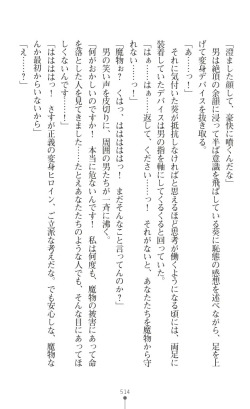 「澄ました顔して、豪快に噴くんだな」
男は絶頂の余韻に浸って半ば意識を飛ばしている葵に恥態の感想を述べながら、足を上
げて変身デバイスを抜き取る。
「あ……っ！」
それに気付いた葵が抵抗しなければと思えるほど思考が働くようになる頃には、両足に
装着していたデバイスは男の指を軸にしてくるくると回っていた。
「はぁっ……はぁっ……返して、ください……っ！　それがないと、あなたたちを魔物から守
れない……っ！」
「魔物ぉ？　くはっ、はははははっ！　まだそんなこと言ってんのか？」
男の笑い声を皮切りに、周囲の男たちが一斉に沸く。
「何がおかしいのですか！　本当に危ないんです！　私は何度も、魔物の被害にあって命
を落とした人を見てきました！　たとえあなたたちのような人でも、そんな目にあってほ
しくないんです……！」
「はははははっ！　さすが正義の変身ヒロイン、ご立派な考えだな。でも安心しな、魔物な
んか最初からいないから」
「え……？」
514